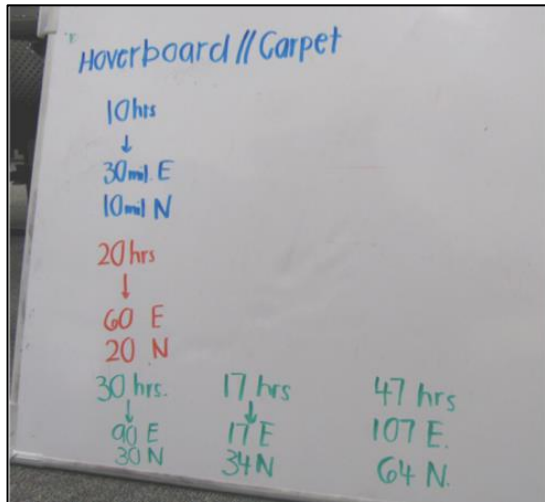 Hoverboard // Carpet
10 hrs
↓
30 mil. E
10 mil N
20 hrs
↓
60 E
20 N
30 hrs.
↓
90 E
30 N
17 hrs
↓
17 E
34 N
47 hrs
107 E.
64 N.